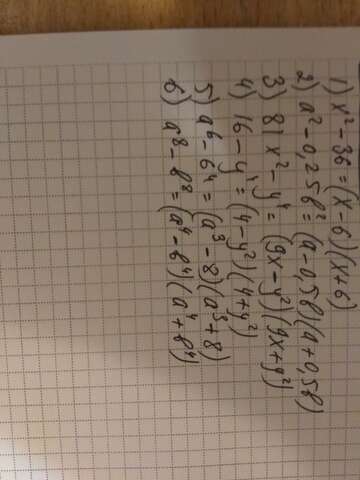 1) x² - 36 = (x - 6)(x + 6)
2) a² - 0,25b² = (a - 0,5b)(a + 0,5b)
3) 81x² - y⁴ = (9x - y²)(9x + y²)
4) 16 - y⁴ = (4 - y²)(4 + y²)
5) a⁶ - 64 = (a³ - 8)(a³ + 8)
6) a⁸ - b⁸ = (a⁴ - b⁴)(a⁴ + b⁴)